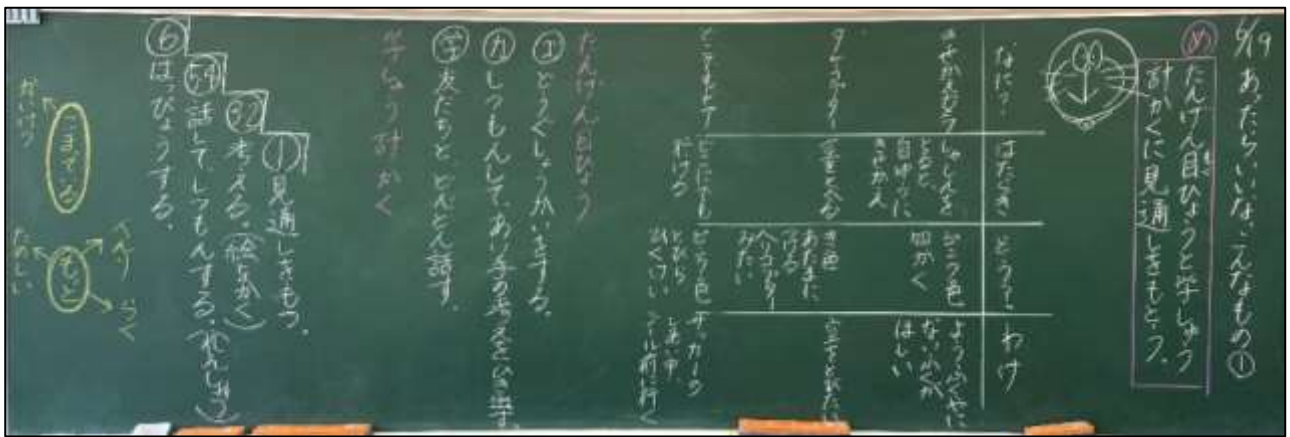 6/19 あったらいいな、こんなもの①
め
たんけん目ひょうと学しゅう
計かくに見通しをもとう。
なに？
はたらき
どうなって
わけ
きせかえカメラ
しゃしんを
とると、
自ゆうに
きせかえ
四かく
ようふくやに
ないふくが
ほしい
タケコプター
空をとべる
き色
あたまに
つける
ヘリコプター
みたい
空をとびたい
どこでもドア
どこにでも
行ける
ピンク色
とびら
サッカーの
しあい中、
ゴール前に行く
たんけん目ひょう
エ どうぐしょうかいをする。
カ しつもんして、あい手の考えをひき出す。
学 友だちと、どんどん話す。
学しゅう計かく
① 見通しをもつ。
②③ 考える。（絵をかく）
④⑤ 話して、しつもんする。（れんしゅう）
⑥ はっぴょうする。
こまってる
かいけつ
もっと
べんり
らく
たのしい